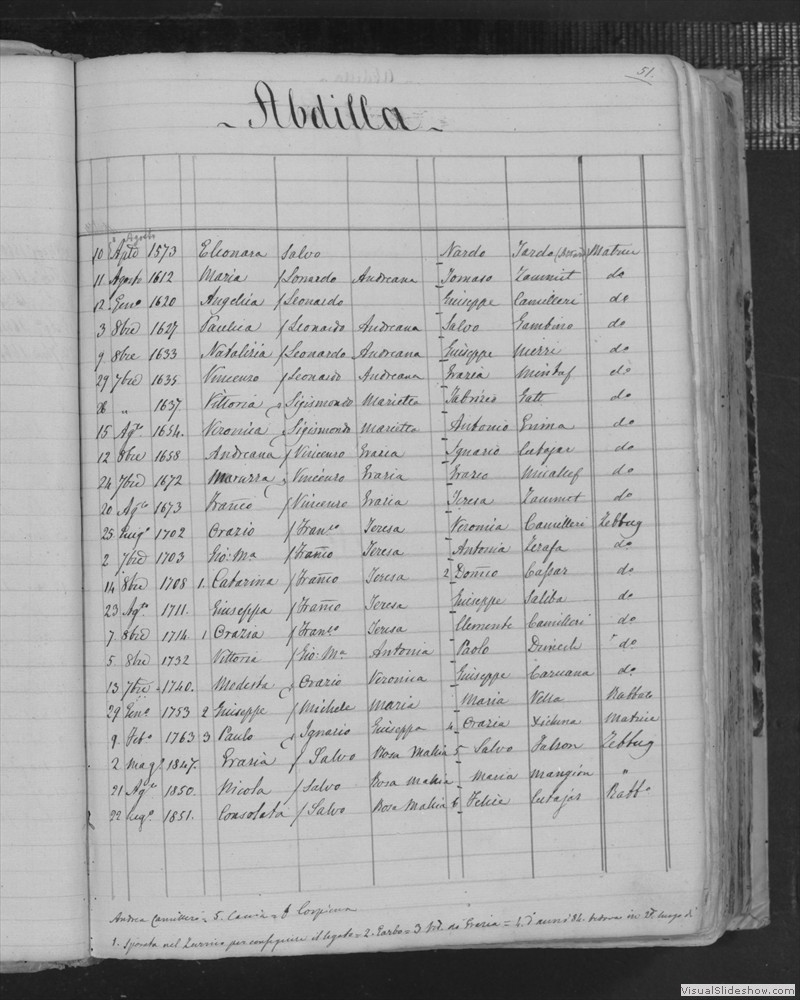 51.
Abdilla
Agosto
10 Apte 1573 Eleonara Salvo Nardo Matrice
11 Agosto 1612 Maria f Leonardo Andreana Tomaso Zammit do
12 Geno 1620 Angelica f Leonardo Giuseppe Camilleri do
3 8bre 1627 Paulica f Leonardo Andreana Salvo Gambino do
9 8bre 1633 Natalizia f Leonardo Andreana Giuseppe do
29 7bre 1635 Vincenzo f Leonardo Andreana Grazia do
" 1637 Vittoria Sigismondo Marietta Fabrizio Gatt do
15 Ago 1654. Veronica Sigismondo Marietta Antonio do
12 8bre 1658 Andreana f Vincenzo Grazia Ignazio Cutajar do
24 7bre 1672 Vincenzo Grazia Grazio Micallef do
20 Ago 1673 Franco f Vincenzo Grazia Teresa Zammit do
25 1702 Orazio f Franco Teresa Veronica Camilleri Zebbug
2 7bre 1703 Gio: Ma f Franco Teresa Antonia Zerafa do
14 8bre 1708 1. Catarina f Franco Teresa 2 Domco Cassar do
23 Ago 1711. Giuseppa f Franco Teresa Giuseppe Saliba do
7 8bre 1714 1 Grazia f Franco Teresa Clemente Camilleri do
5 8bre 1732 Vittoria f Gio: Ma Antonia Paolo Dimech do
13 7bre 1740. Modesta Orazio Veronica Giuseppe Caruana do
29 Geno 1753 2 Giuseppe f Michele Maria Maria Vella Rabbato
9 Febo 1763 3 Paulo Ignazio Giuseppa 4 Grazia Xicluna Matrice
2 Mago 1847. Grazia f Salvo Rosa Maria 5 Salvo Falzon Zebbug
21 Ago 1850. Nicola f Salvo Rosa Maria Maria Mangion "
22 1851. Consolata f Salvo Rosa Maria 6 Felice Cutajar Rabbo
Andrea Camilleri = 5. = 6
1. Sposata nel per conseguire il legato = 2. = 3 Ved. di Grazia = 4. d'anni
VisualSlideshow.com